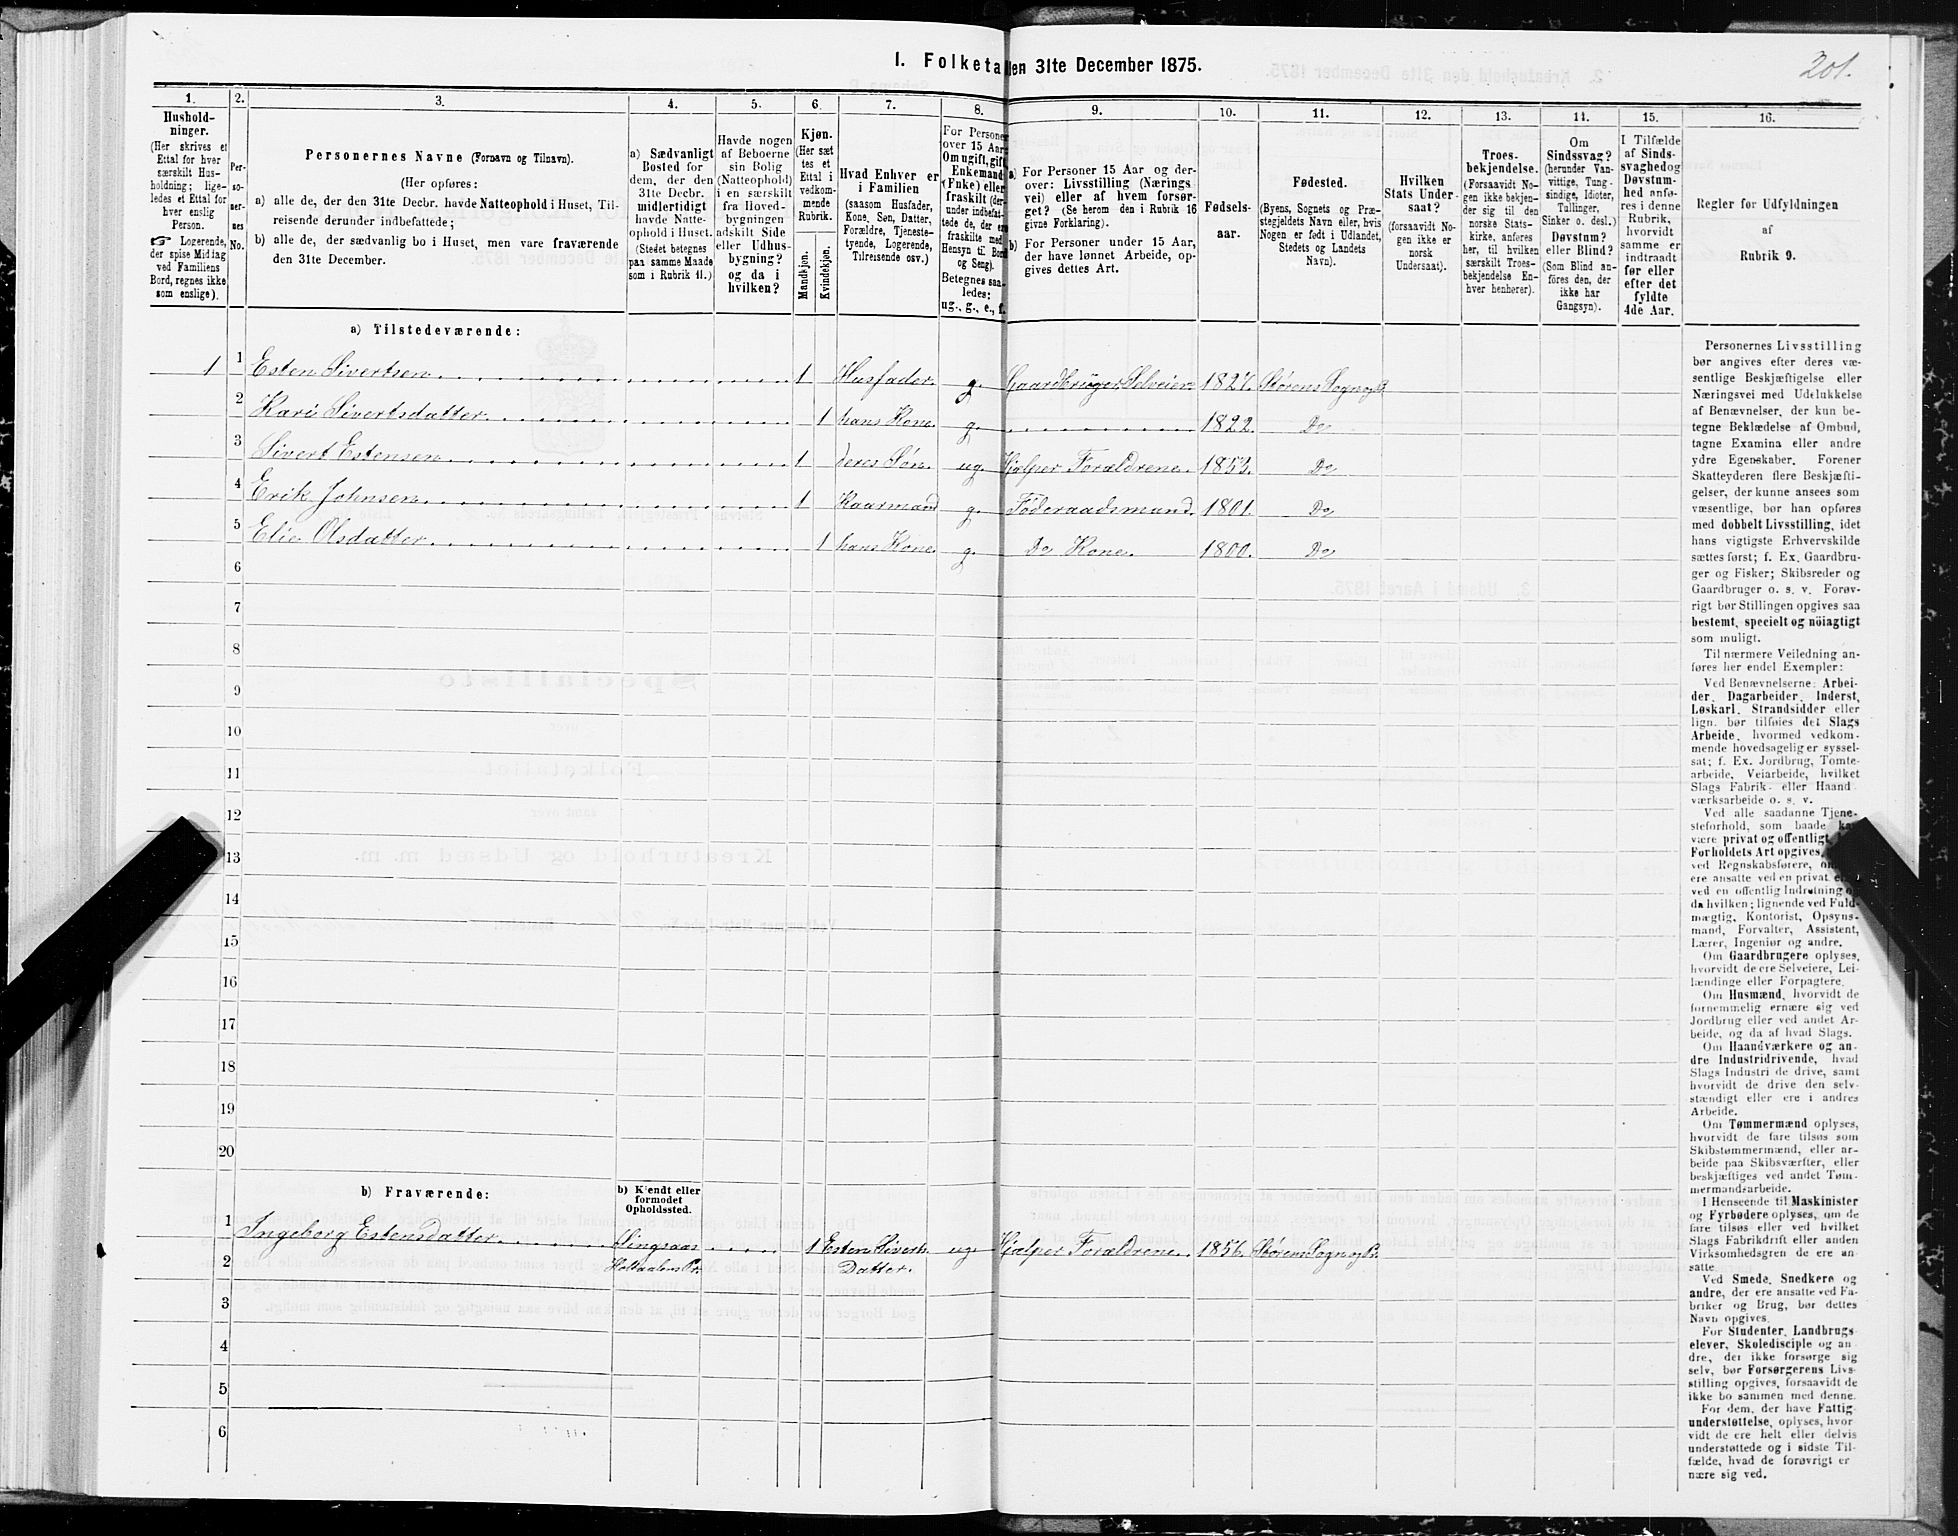 201.
1. Folketallen 31te December 1875.
1. 2. 3. 4. 5. 6. 7. 8. 9. 10. 11. 12. 13. 14. 15. 16.
Hushold-
ninger.
(Her skrives et
Ettal for hver
særskilt Hus-
holdning; lige-
ledes et Ettal for
hver enslig
Person.
☞ Logerende,
der spise Middag
ved Familiens
Bord, regnes ikke
som enslige).
Per-
so-
ner-
nes
No.
Personernes Navne (Fornavn og Tilnavn).
(Her opføres:
a) alle de, der den 31te Decbr. havde Natteophold i Huset, Til-
reisende derunder indbefattede;
b) alle de, der sædvanlig bo i Huset, men vare fraværende
den 31te December.
a) Sædvanligt
Bosted for
dem, der den
31te Decbr.
midlertidigt
havde Natte-
ophold i Huset.
(Stedet betegnes
paa samme Maade
som i Rubrik 11.)
Havde nogen
af Beboerne
sin Bolig
(Natteophold)
i en særskilt
fra Hoved-
bygningen
adskilt Side
eller Udhus-
bygning?
og da i
hvilken?
Kjøn.
(Her sæt-
tes et
Ettal i
vedkom-
mende
Rubrik.
Mandkjøn.
Kvindekjøn.
Hvad Enhver er
i Familien
(saasom Husfader,
Kone, Søn, Datter,
Forældre, Tjeneste-
tyende, Logerende,
Tilreisende osv.)
For Personer
over 15 Aar:
Om ugift, gift,
Enkemand
(Fnke) eller
fraskilt (der-
under indbefat-
tede de, der ere
fraskilte med
Hensyn til Bord
og Seng).
Betegnes saa-
ledes:
ug., g., e., f.
a) For Personer 15 Aar og der-
over: Livsstilling (Nærings
vei) eller af hvem forsør-
get? (Se herom den i Rubrik 16
givne Forklaring).
b) For Personer under 15 Aar,
der have lønnet Arbeide, op-
gives dettes Art.
Fødsels-
aar.
Fødested.
(Byens, Sognets og Præ-
stegjeldets Navn eller, hvis
Nogen er født i Udlandet,
Stedets og Landets
Navn).
Hvilken
Stats Under-
saat?
(forsaavidt No-
gen ikke er
norsk
Undersaat).
Troes-
bekjendelse.
(Forsaavidt No-
gen ikke bekjen-
der sig til den
norske Stats-
kirke, anføres
her, til hvilken
særskilt Troes-
bekjendelse En-
hver henhører).
Om
Sindssvag?
(herunder Van-
vittige, Tung-
sindige, Idioter,
Tullinger,
Sinker o. desl.)
Døvstum?
eller Blind?
(Som Blind an-
føres den, der
ikke har
Gangsyn).
I Tilfælde
af Sinds-
svaghed og
Døvstum-
hed anfø-
res i denne
Rubrik,
hvorvidt
samme er
indtraadt
før eller
efter det
fyldte
4de Aar.
Regler for Udfyldningen
af
Rubrik 9.
a) Tilstedeværende:
1 1 Esten Sivertsen 1 Husfader g. Gaardbruger Selveier 1827. Størens Sogn og P.
2 Kari Sivertsdatter 1 hans Kone g. 1822. Do
3 Sivert Estensen 1 deres Søn ug. Hjælper Forældrene 1853. Do
4 Erik Johnsen 1 Kaarmand g. Føderaadsmand. 1801. Do
5 Elie Olsdatter 1 hans Kone g. Do Kone. 1800. Do
6
7
8
9
10
11
12
13
14
15
16
17
18
19
20
b) Fraværende:
b) Kjendt eller
formodet
Opholdssted.
1 Ingeborg Estensdatter Singsaas 1 Esten Siverts. ug. Hjælper Forældrene. 1856. Størens Sogn og Pr.
2 Holtaalens Pr. Datter.
3
4
5
6
Personernes Livsstilling
bør angives efter deres væ-
sentlige Beskjæftigelse eller
Næringsvei med Udelukkelse
af Benævnelser, der kun be-
tegne Beklædelse af Ombud,
tagne Examina eller andre
ydre Egenskaber. Forener
Skatteyderen flere Beskjæfti-
gelser, der kunne ansees som
væsentlige, bør han opføres
med dobbelt Livsstilling, idet
hans vigtigste Erhvervskilde
sættes først; f. Ex. Gaardbru-
ger og Fisker; Skibsreder og
Gaardbruger o. s. v. Forøv-
rigt bør Stillingen opgives saa
bestemt, specielt og nöiagtigt
som muligt.
Til nærmere Veiledning an-
føres her endel Exempler:
Ved Benævnelserne: Arbei-
der, Dagarbeider, Inderst,
Løskarl, Strandsidder eller
lign. bør tilføies det Slags
Arbeide, hvormed vedkom-
mende hovedsagelig er syssel-
sat; f. Ex. Jordbrug, Tomte-
arbeide, Veiarbeide, hvilket
Slags Fabrik- eller Haand
værksarbeide o. s. v.
Ved alle saadanne Tjene-
steforhold, som baade
være privat og offentligt,
Forholdets Art opgives,
ved Regnskabsførere,
ere ansatte ved en privat
ved en offentlig Indretning
da hvilken; lignende ved Fuld-
mægtig, Kontorist, Opsyns-
mand, Forvalter, Assistent,
Lærer, Ingeniør og andre.
Om Gaardbrugere oplyses,
hvorvidt de ere Selveiere, Lei-
lændinge eller Forpagtere.
Om Husmænd, hvorvidt de
fornemmelig ernære sig ved
Jordbrug eller ved andet Ar-
beide, og da af hvad Slags.
Om Haandværkere og an-
dre Industridrivende, hvad
Slags Industri de drive, samt
hvorvidt de drive den selv-
stændigt eller ere i andres
Arbeide.
Om Tømmermænd oplyses,
hvorvidt de fare tilsøs som
Skibstømmermænd, eller ar-
beide paa Skibsværfter, eller
beskjæftiges ved andet Tøm-
mermandsarbeide.
I Henseende til Maskinister
og Fyrbødere oplyses, om de
fare tilsøs eller ved hvilket
Slags Fabrikdrift eller anden
Virksomhedsgren de ere an-
satte.
Ved Smede, Snedkere og
andre, der ere ansatte ved Fa-
briker og Brug, bør dettes
Navn opgives.
For Studenter, Landbrugs-
elever, Skoledisciple og an-
dre, der ikke forsørge sig
selv, bør Forsørgerens Livs-
stilling opgives, forsaavidt de
ikke bo sammen med denne.
For dem, der have Fattig-
understøttelse, oplyses, hvor
vidt de ere helt eller delvis
understøttede og i sidste Til-
fælde, hvad de forøvrigt er
nære sig ved.